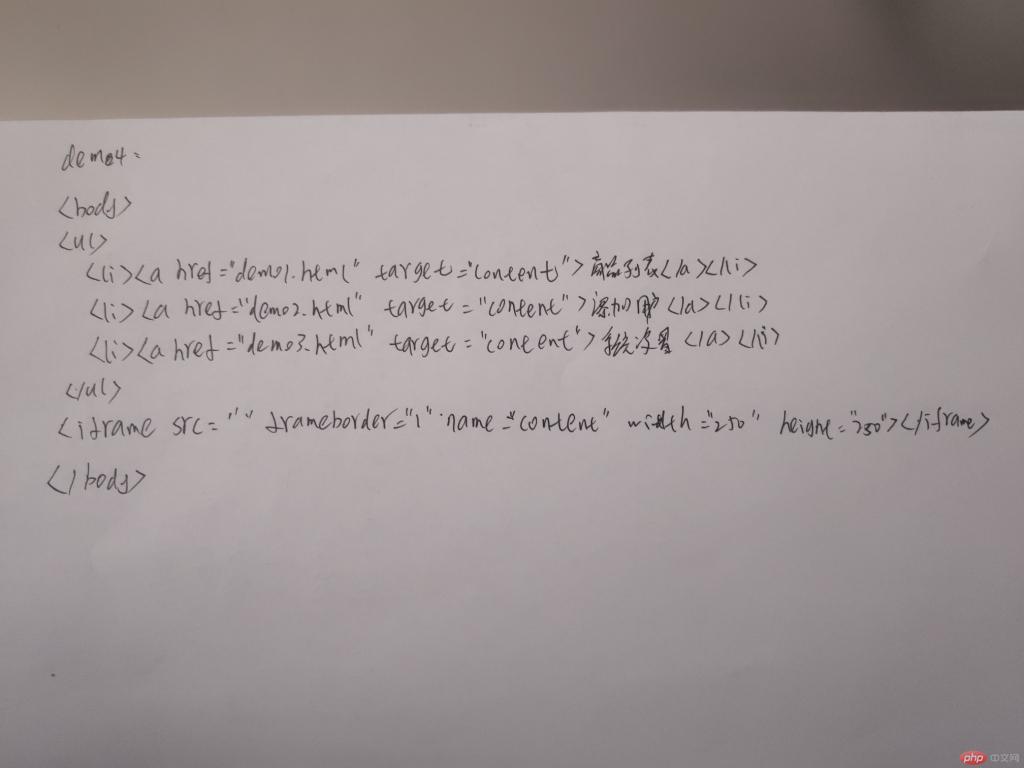 demo4:
<body>
<ul>
<li><a href="demo1.html" target="content">商品列表</a></li>
<li><a href="demo2.html" target="content">添加用户</a></li>
<li><a href="demo3.html" target="content">系统设置</a></li>
</ul>
<iframe src="" frameborder="1" name="content" width="250" height="250"></iframe>
</body>
php 中文网